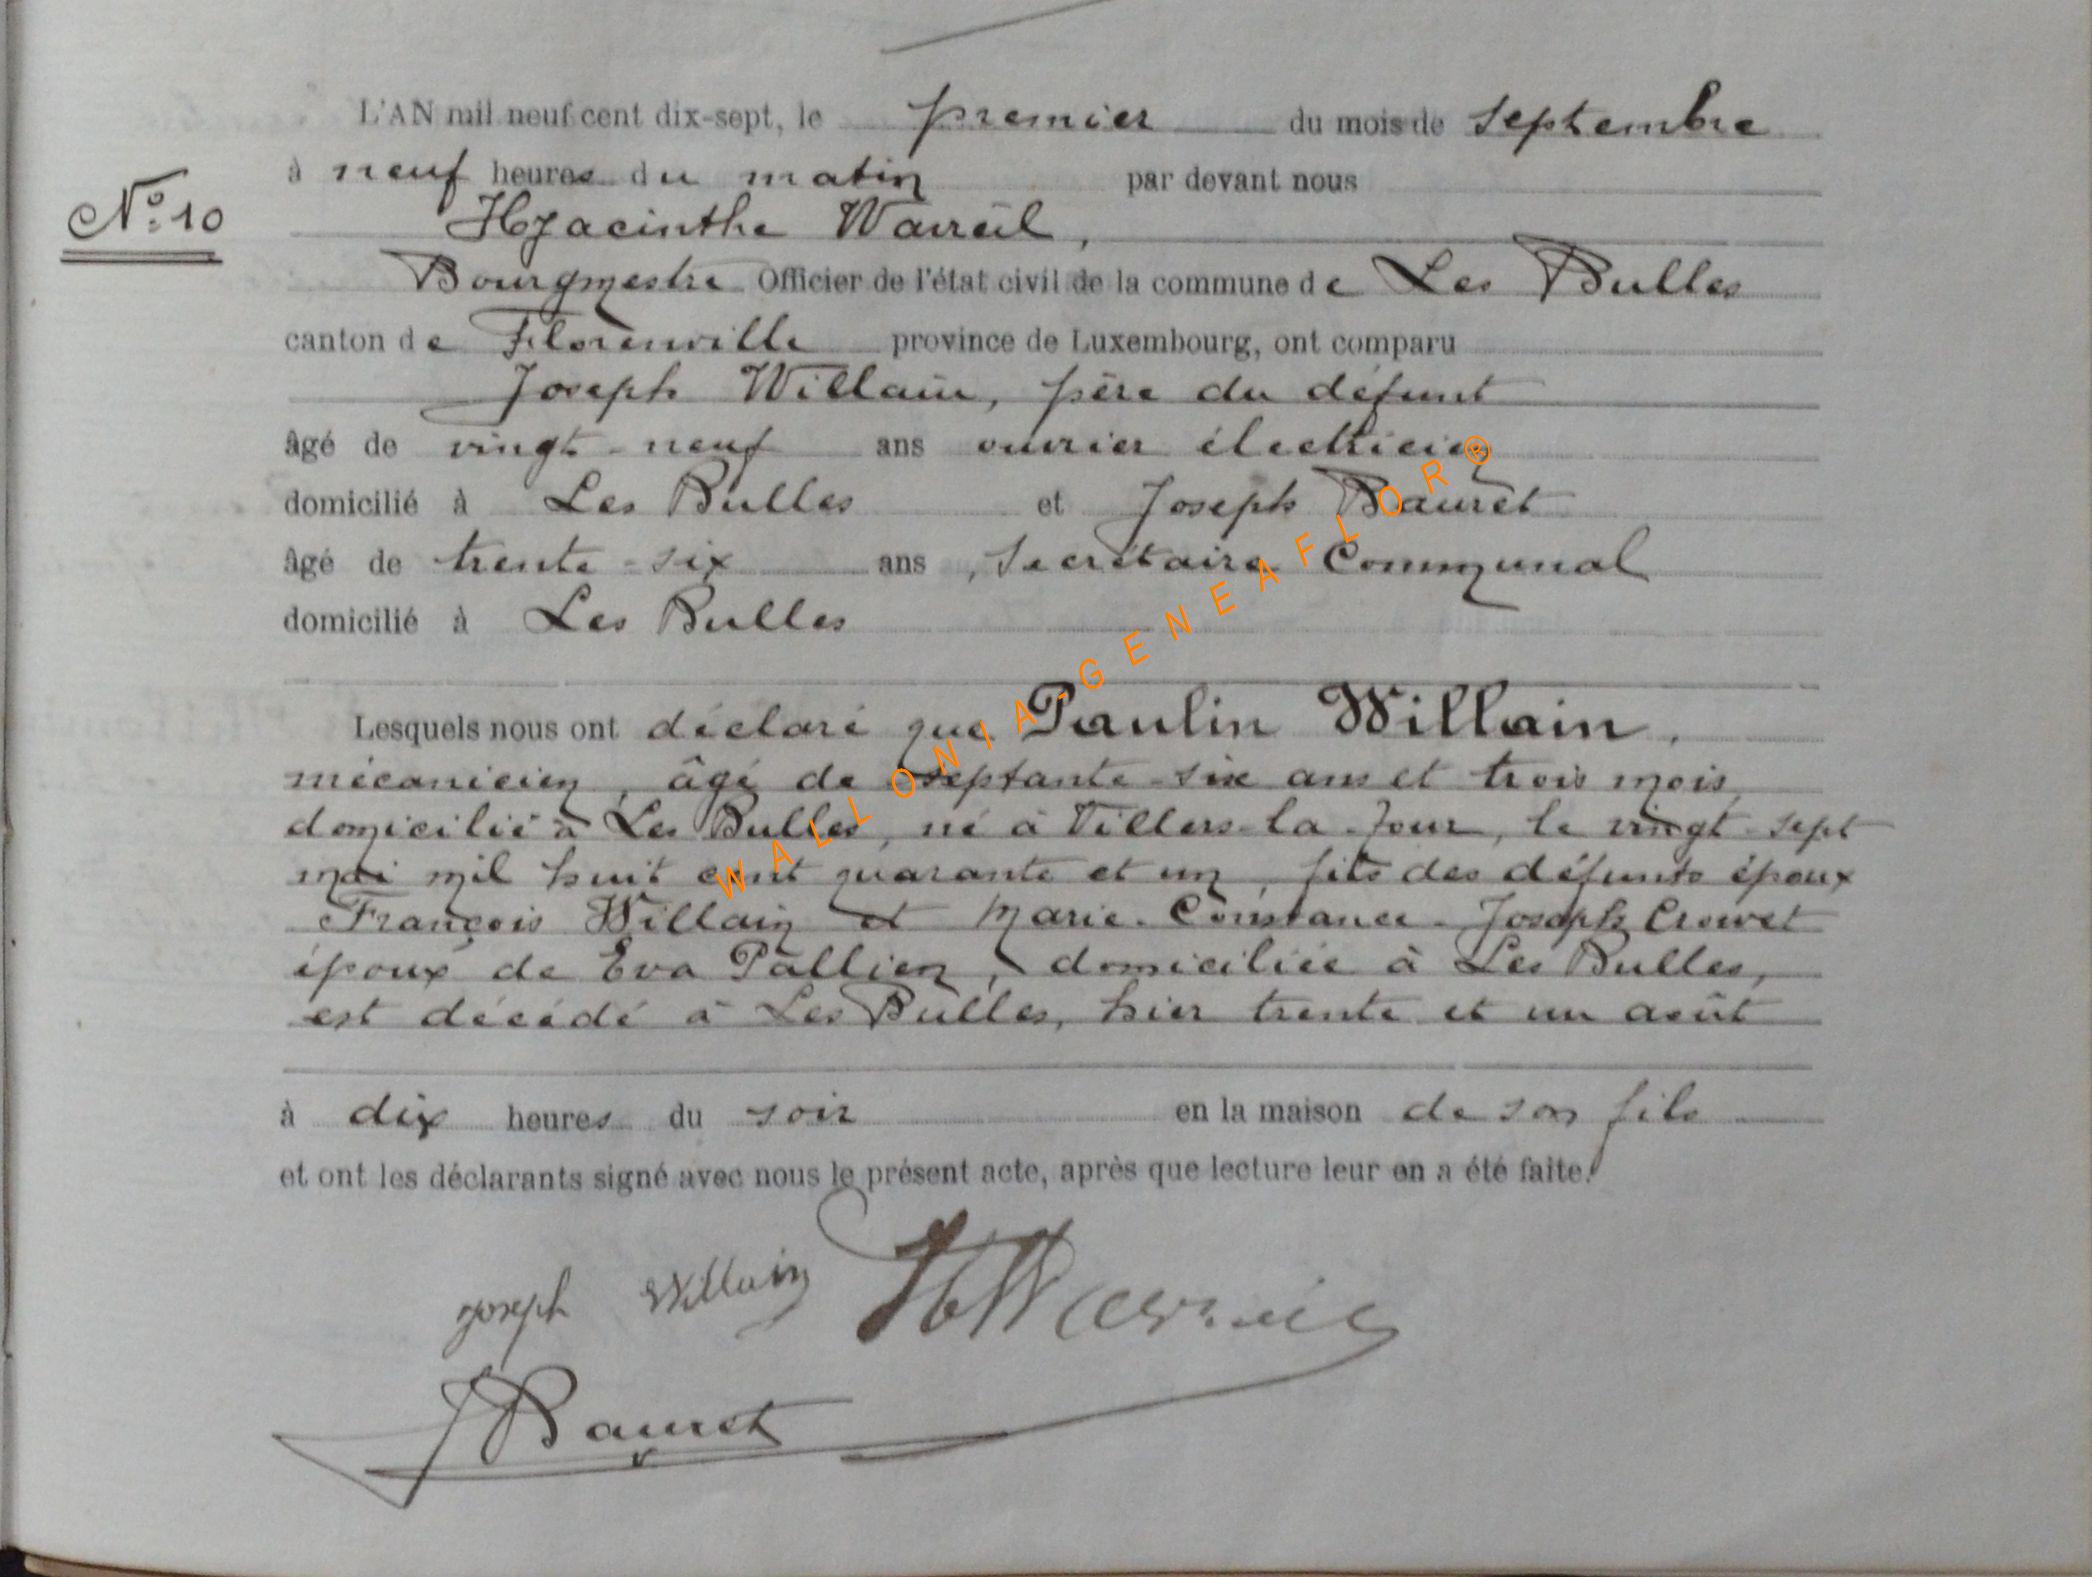 L'AN mil neuf cent dix-sept, le premier du mois de septembre
à neuf heures du matin par devant nous
Nº 10
Hyacinthe
Bourgmestre Officier de l'état civil de la commune de Les Bulles
canton de Florenville province de Luxembourg, ont comparu
Joseph Willain, père du défunt
âgé de vingt-neuf ans ouvrier électricien
domicilié à Les Bulles et Joseph Bauret
âgé de trente-six ans, secrétaire Communal
domicilié à Les Bulles
Lesquels nous ont déclaré que Paulin Willain,
mécanicien, âgé de septante-six ans et trois mois,
domicilié à Les Bulles, né à Villers-la-Tour, le vingt-sept
mai mil huit cent quarante et un, fils des défunts époux
François Willain et Marie-Constance-Joseph Crowet
époux de Eva Pallien, domiciliée à Les Bulles,
est décédé à Les Bulles, hier trente et un août
à dix heures du soir en la maison de son fils
et ont les déclarants signé avec nous le présent acte, après que lecture leur en a été faite.
Joseph Willain
J Bauret
WALLONIA-GENEAFLOR®